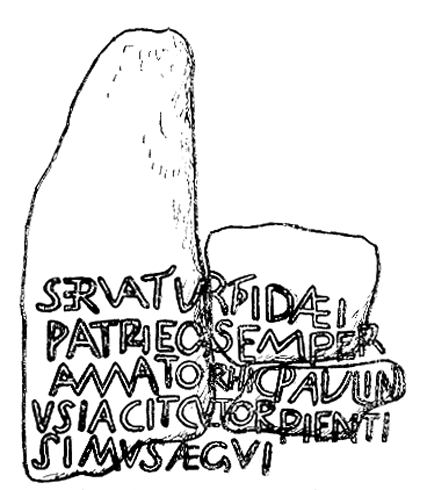 SERVATVR FIDÆI
PATRIEQ SEMPER
AMATOR HIC PAVLIN
VS IACIT CVLTOR PIENTI
SIMVS ÆQVI